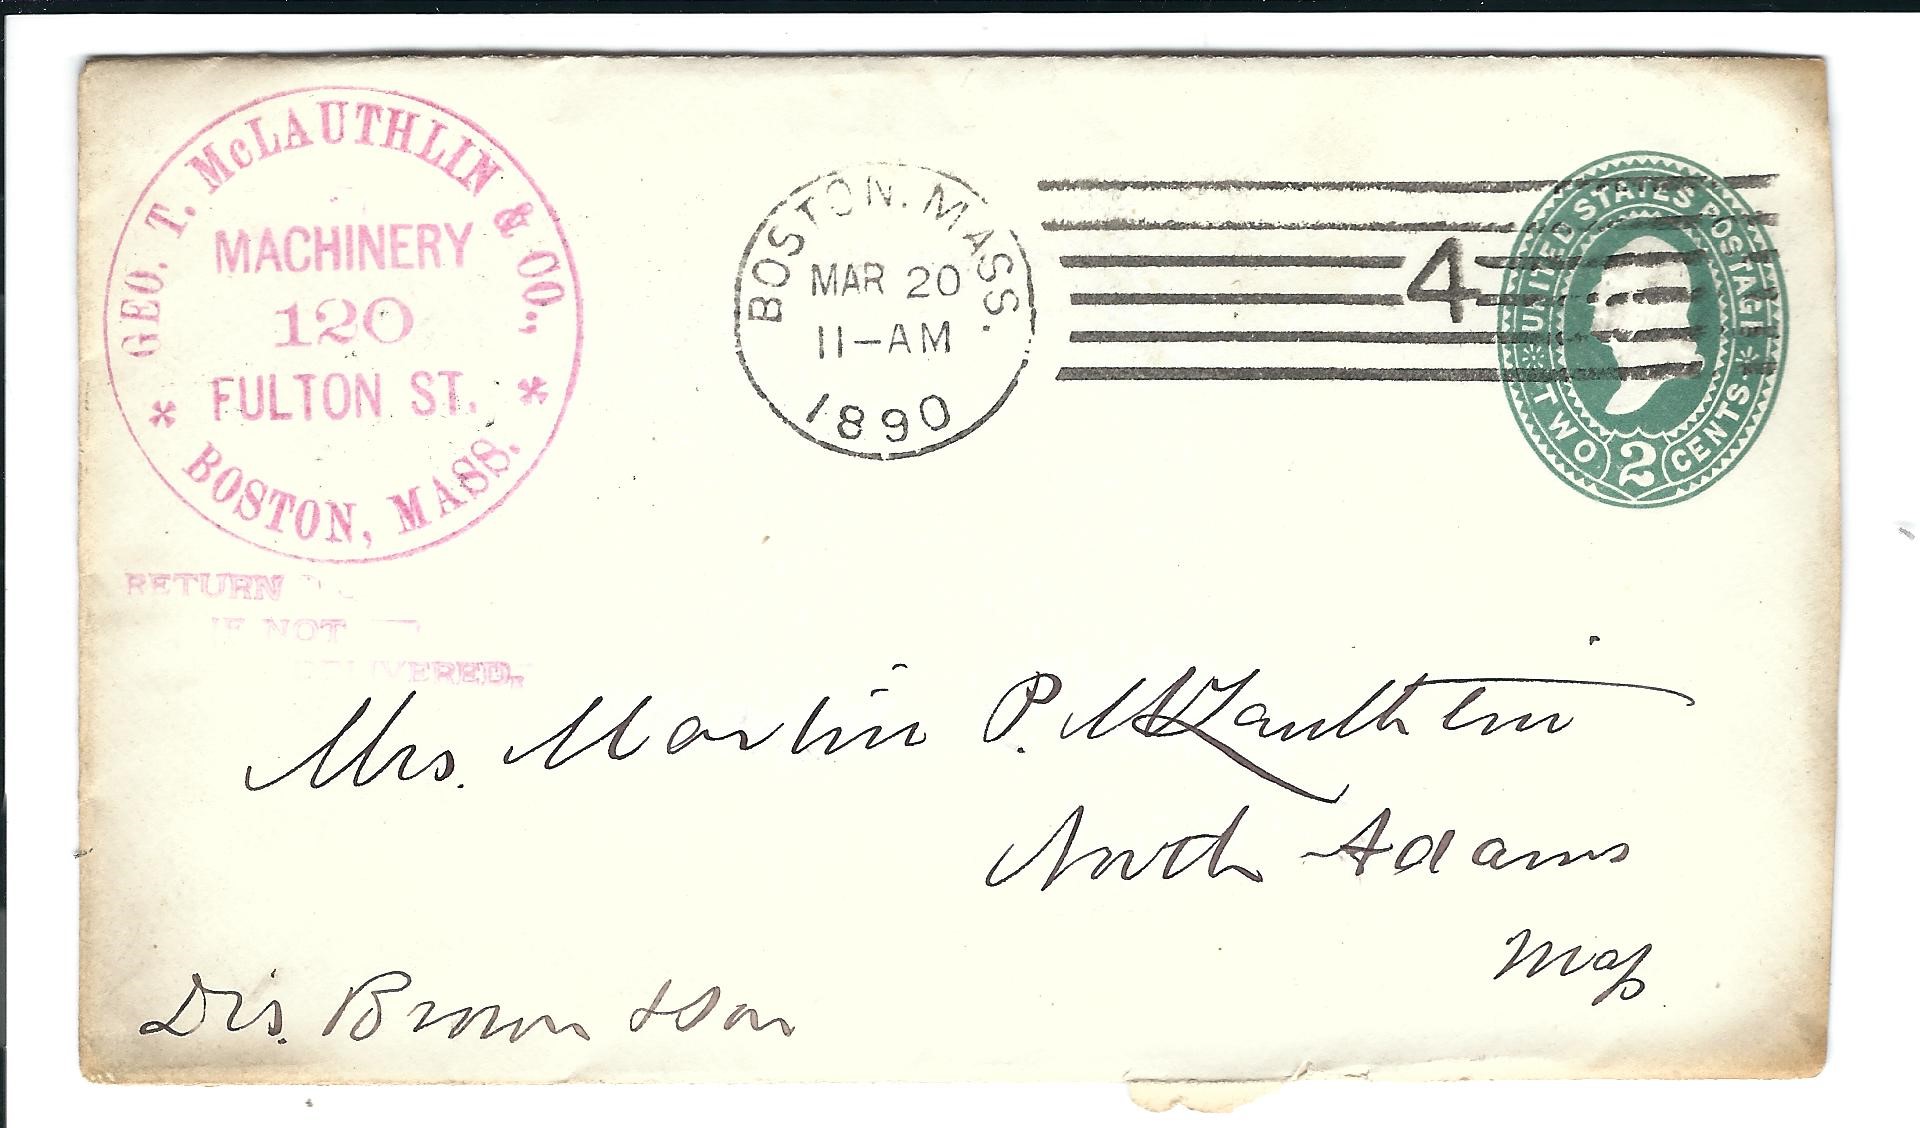 GEO. T. McLAUTHLIN & CO.,
MACHINERY
120
FULTON ST.
* BOSTON, MASS. *
RETURN
IF NOT
DELIVERED.
BOSTON. MASS.
MAR 20
11-AM
1890
4
UNITED STATES POSTAGE
TWO 2 CENTS
Mrs. Martin P. McLauthlin
North Adams
Mass
Drs. Brown & Son